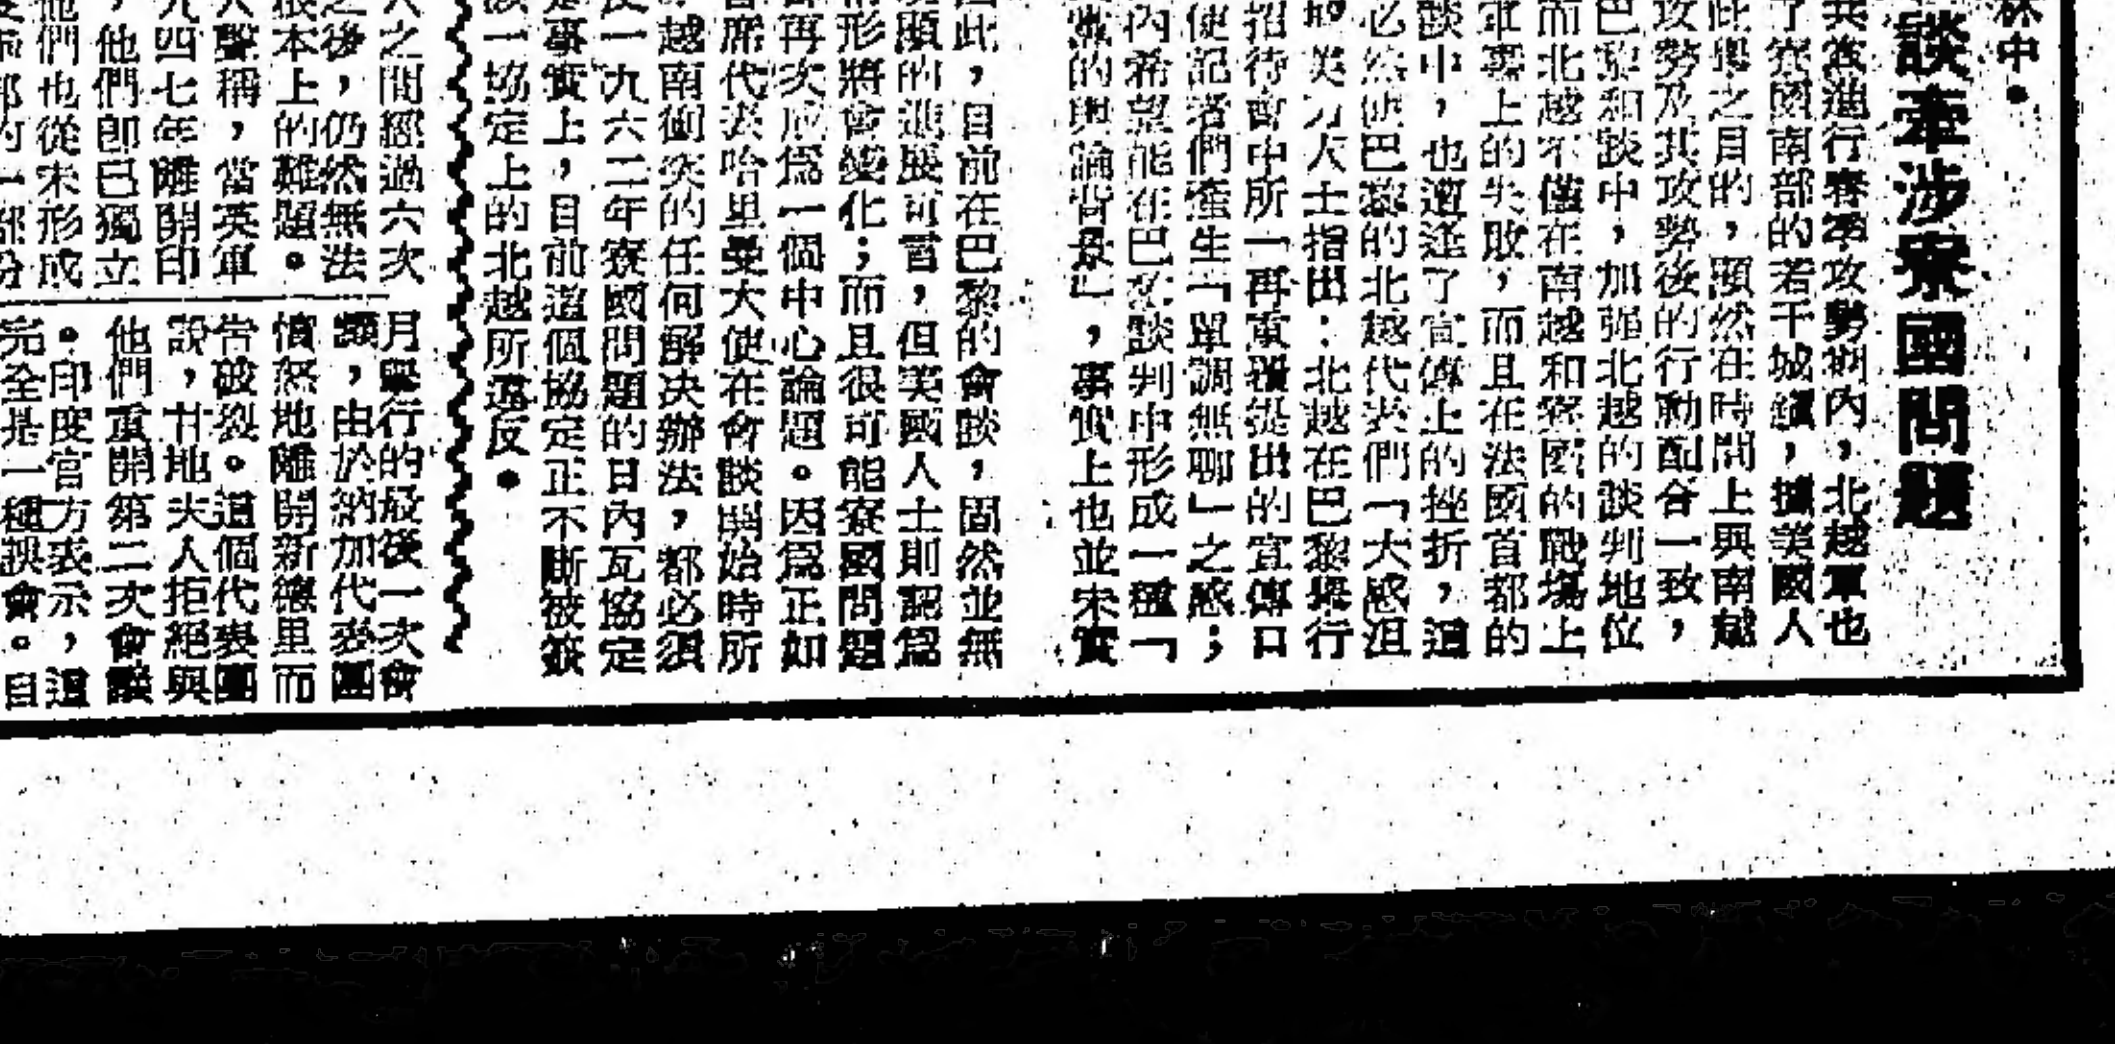 林中。
談牽涉寮國問題
共當進行春季攻勢期內，北越軍也
了寮國南部的若干城鎮，據美國人
此舉之目的，顯然在時間上與南越
攻勢及其攻勢後的行動配合一致，
巴黎和談中，加強北越的談判地位
而北越不僅在南越和寮國的戰場上
軍事上的失敗，而且在法國首都的
談中，也遭逢了宣傳上的挫折，這
必然使巴黎的北越代表們「大感沮
美方人士指出：北越在巴黎舉行
招待會中所一再重複提出的宣傳口
使記者們產生「單調無聊」之感；
內希望能在巴黎談判中形成一種「
的輿論背景」，事實上也並未實
因此，目前在巴黎的會談，固然並無
明顯的進展可言，但美國人士則認為
情形將會變化；而且很可能寮國問題
再次成為一個中心論題。因為正如
首席代表哈里曼大使在會談開始時所
越南衝突的任何解決辦法，都必須
一九六二年寮國問題的日內瓦協定
事實上，目前這個協定正不斷被簽
該一協定上的北越所違反。
六之間經過六次
之後，仍然無法
根本上的難題。
人聲稱，當英軍
九四七年離開印
，他們即已獨立
他們也從未形成
部的一部份
月舉行的最後一次會
議，由於納加代表團
憤怒地離開新德里而
告破裂。這個代表團
說，甘地夫人拒絕與
他們重開第二次會談
。印度官方表示，這
完全是一種誤會。自